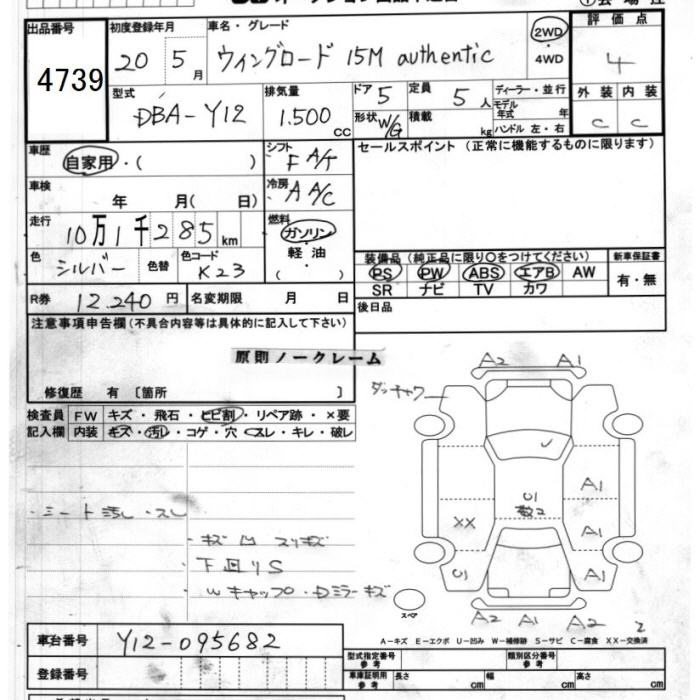 出品番号
4739
初度登録年月
20 5月
車名・グレード
ウィングロード 15M authentic
2WD・4WD
評価点
4
型式
DBA-Y12
排気量
1.500cc
ドア 5
形状 W/G
定員 5人
積載 kg
ディーラー・並行
モデル年式 年
ハンドル 左・右
外装 内装
C C
車歴
自家用・( )
シフト
F A/T
セールスポイント (正常に機能するものに限ります)
車検
年 月( 日)
冷房
A A/C
走行
10万1千285km
燃料
ガソリン・軽油・( )
色
シルバー
色替
色コード
K23
装備品 (純正品に限り○をつけてください)
PS PW ABS エアB AW
SR ナビ TV カワ
新車保証書
有・無
R券 12.240円
名変期限 月 日
後日品
注意事項申告欄(不具合内容等は具体的に記入して下さい)
原則ノークレーム
修復歴 有 〔箇所 〕
検査員記入欄
FW キズ・飛石・ヒビ割・リペア跡・×要
内装 キズ・汚レ・コゲ・穴・スレ・キレ・破レ
シート汚レ・スレ
キズ 凹 スリキズ
下回りS
Wキャップ・Dミラーキズ
A2 A1
A1
U1
XX
A1
U1 A1
スペア
A2 A1 A2 2
A-キズ E-エクボ U-凹み W-補修跡 S-サビ C-腐食 XX-交換済
車台番号 Y12-095682
登録番号
型式指定番号 参考
類別区分番号 参考
車庫証明用 参考
長さ cm
幅 cm
高さ cm